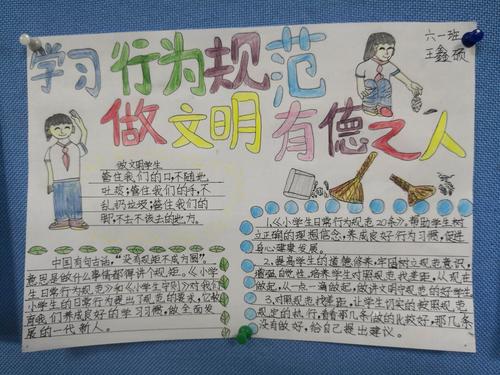 学习行为规范
做文明有德之人
六一班
王鑫硕
做文明学生
管住我们的口,不随地
吐痰;管住我们的手,不
乱扔垃圾;管住我们的
脚,不去不该去的地方。
中国有句古话,“没有规矩不成方圆”,
意思是做什么事情都得讲个规矩。《小学
生日常行为规范》和《小学生守则》对我们
小学生的日常行为提出了规范的要求,它教
育我们养成良好的学习习惯,做全面发
展的一代新人。
1.《小学生日常行为规范20条》,帮助学生树
立正确的理想信念,养成良好行为习惯,促进
身心健康发展。
2、提高学生的道德修养,牢固树立规范意识,
增强自觉性,培养学生对照规范找差距,从现在
做起,从一点一滴做起,做讲文明守规范的好学生
3、对照规范找差距,让学生切实的按照规范
规定的执行,查看那几条做的比较好,那几条
没有做好,给自己提出建议。